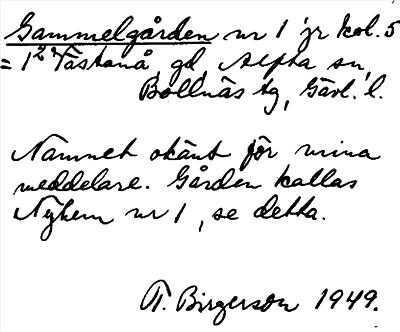 Gammelgården nr 1 jr kol. 5
= 1² Västanå, gd, Alfta sn,
Bollnäs tg, Gävl. l.
Namnet okänt för mina
meddelare. Gården kallas
Nyhem nr 1, se detta.
T. Birgerson 1949.